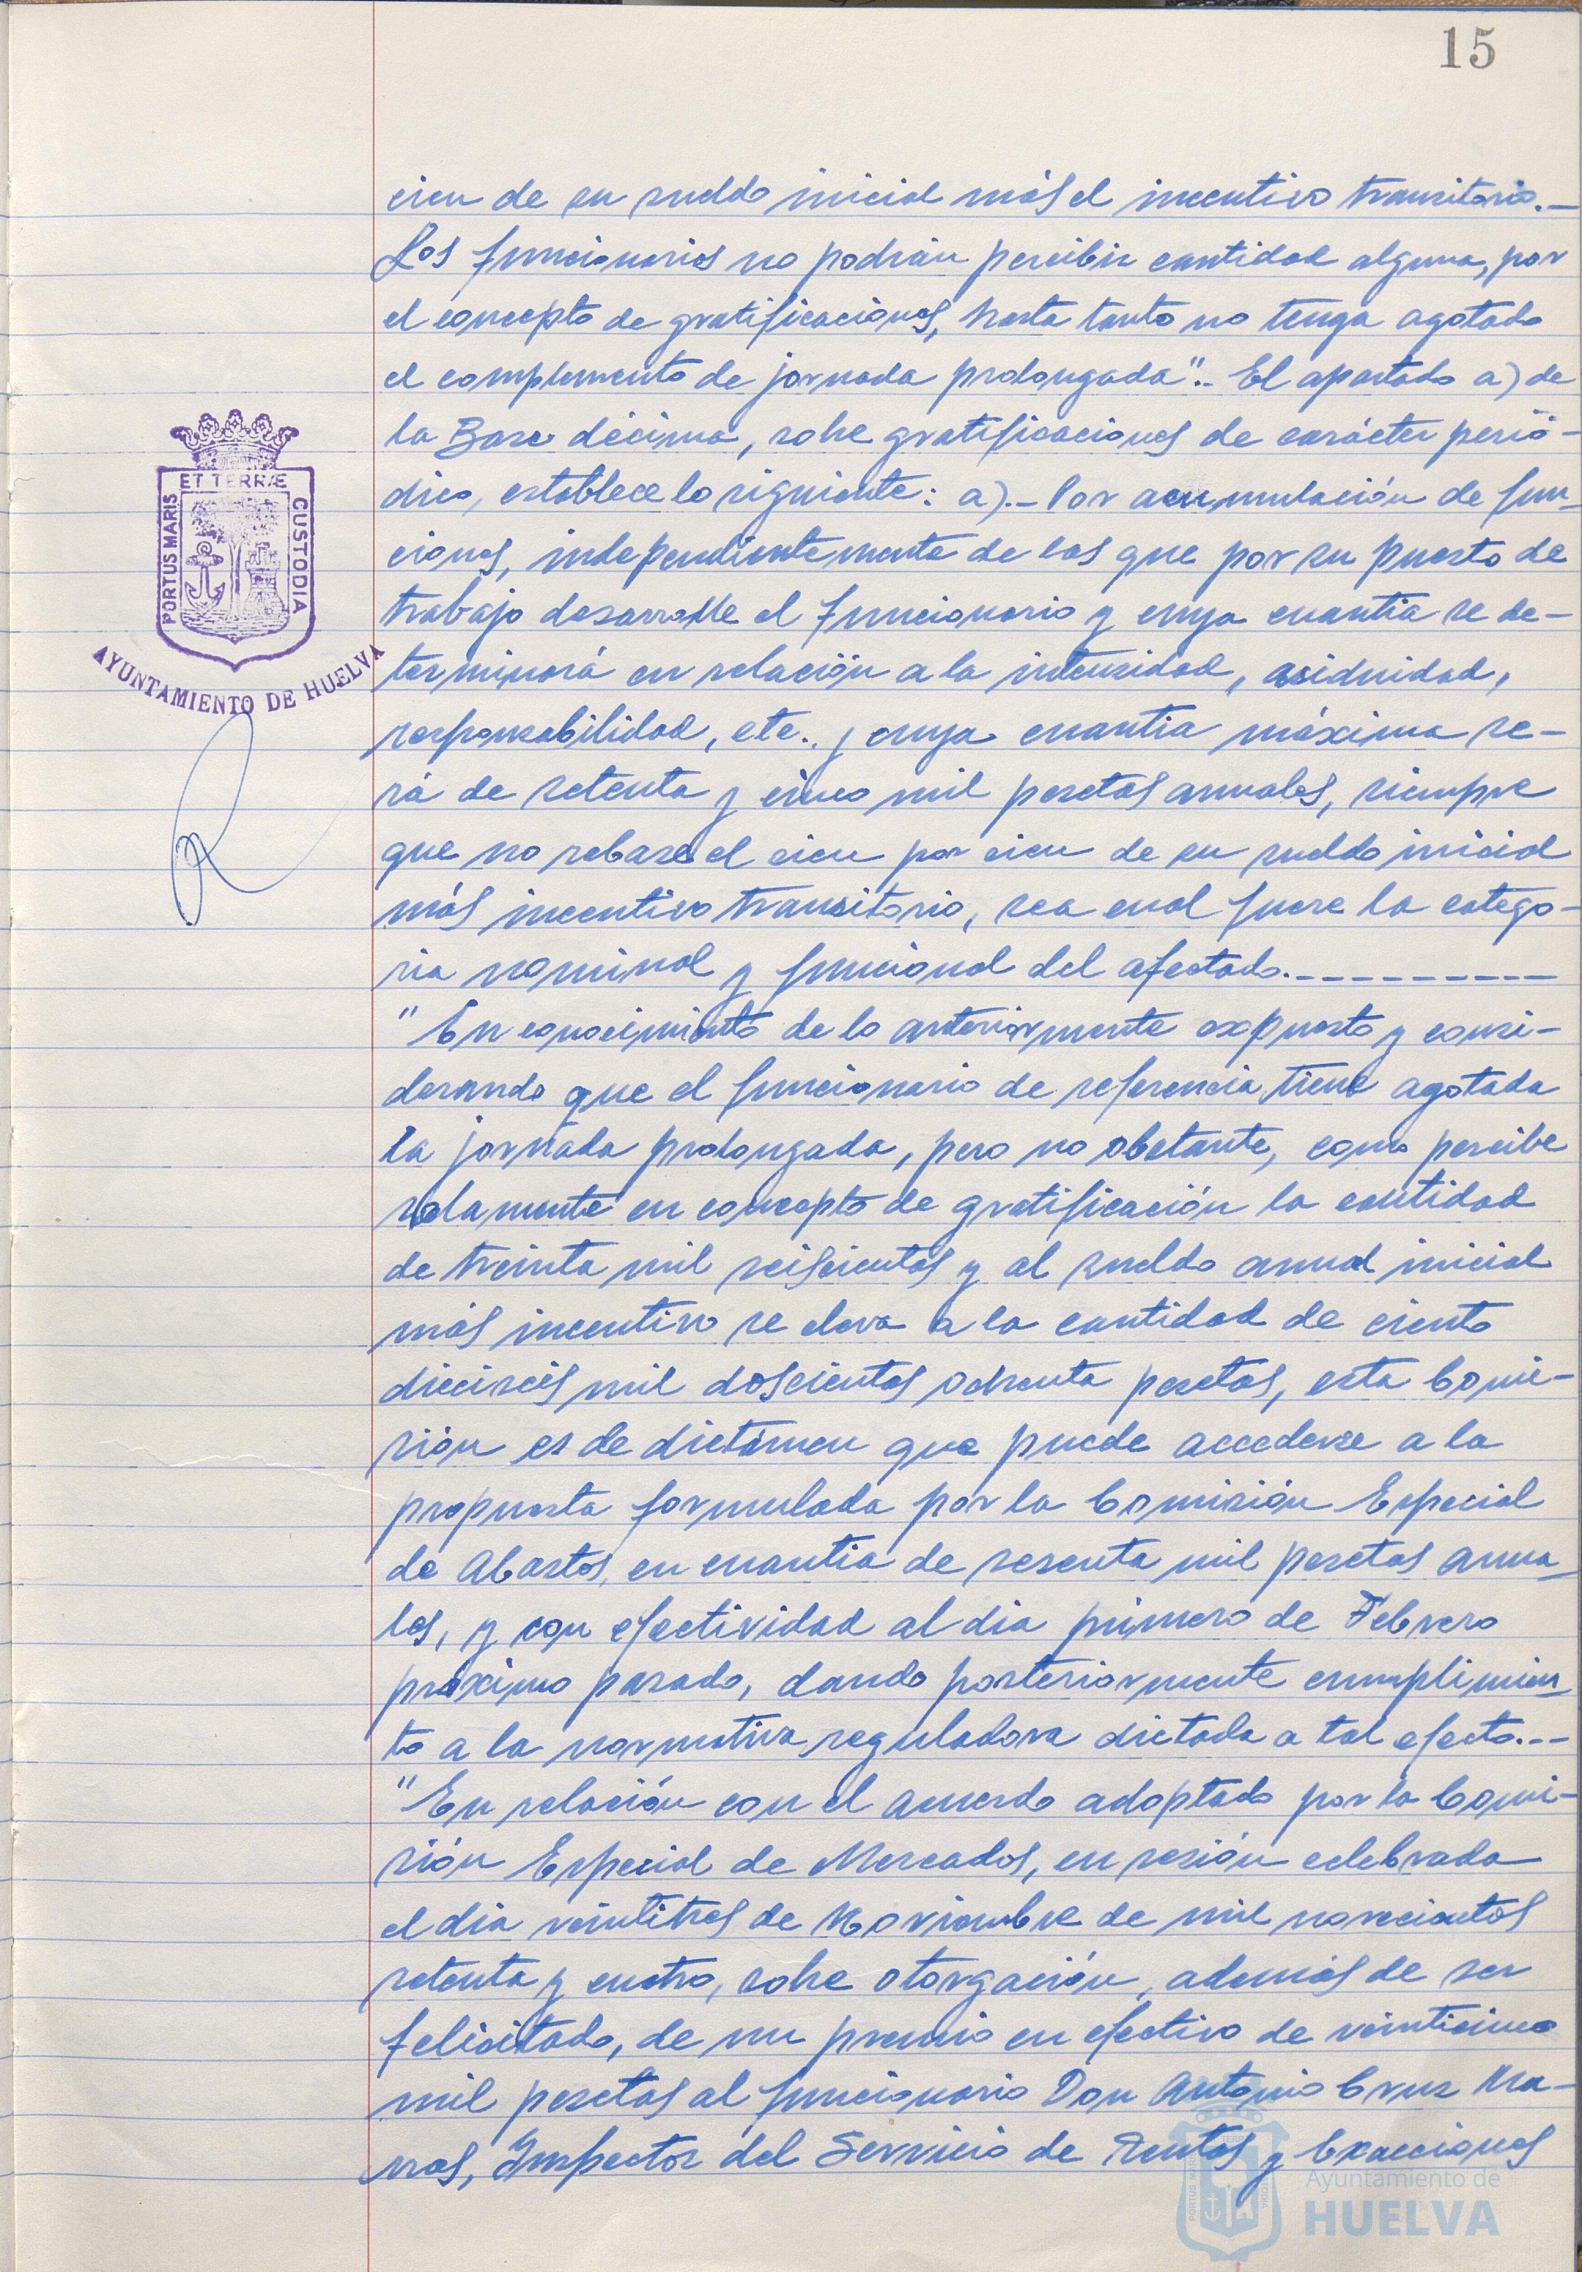 15
cien de su sueldo inicial más el incentivo transitorio.—
Los funcionarios no podrán percibir cantidad alguna, por
el concepto de gratificaciones, hasta tanto no tenga agotado
el complemento de jornada prolongada".- El apartado a) de
la Base décima, sobre gratificaciones de carácter perió-
dico, establece lo siguiente: a).- Por acumulación de fun-
ciones, independientemente de las que por su puesto de
trabajo desarrolle el funcionario y cuya cuantia se de-
terminará en relación a la intensidad, asiduidad,
responsabilidad, etc., y cuya cuantia máxima se-
rá de setenta y cinco mil pesetas anuales, siempre
que no rebase el cien por cien de su sueldo inicial
más incentivo transitorio, sea cual fuere la catego-
ria nominal y funcional del afectado.---------
"En conocimiento de lo anteriormente expuesto y consi-
derando que el funcionario de referencia, tiene agotada
la jornada prolongada, pero no obstante, como percibe
solamente en concepto de gratificación la cantidad
de treinta mil seiscientas y al sueldo anual inicial
más incentivo se eleva a la cantidad de ciento
dieciseis mil doscientas ochenta pesetas, esta Comi-
sión es de dictámen que puede accederse a la
propuesta formulada por la Comisión Especial
de Abastos, en cuantia de sesenta mil pesetas anua-
les, y con efectividad al dia primero de Febrero
próximo pasado, dando posteriormente cumplimien-
to a la normativa reguladora dictada a tal efecto.--
"En relación con el acuerdo adoptado por la Comi-
sión Especial de Mercados, en sesión celebrada
el dia veintitres de Noviembre de mil novecientos
setenta y cuatro, sobre otorgación, además de ser
felicitado, de un premio en efectivo de veinticinco
mil pesetas al funcionario Don Antonio Cruz Ma-
rras, Inspector del Servicio de Rentas y Exacciones
ET TERRÆ
PORTUS MARIS
CUSTODIA
AYUNTAMIENTO DE HUELVA
Ayuntamiento de
HUELVA